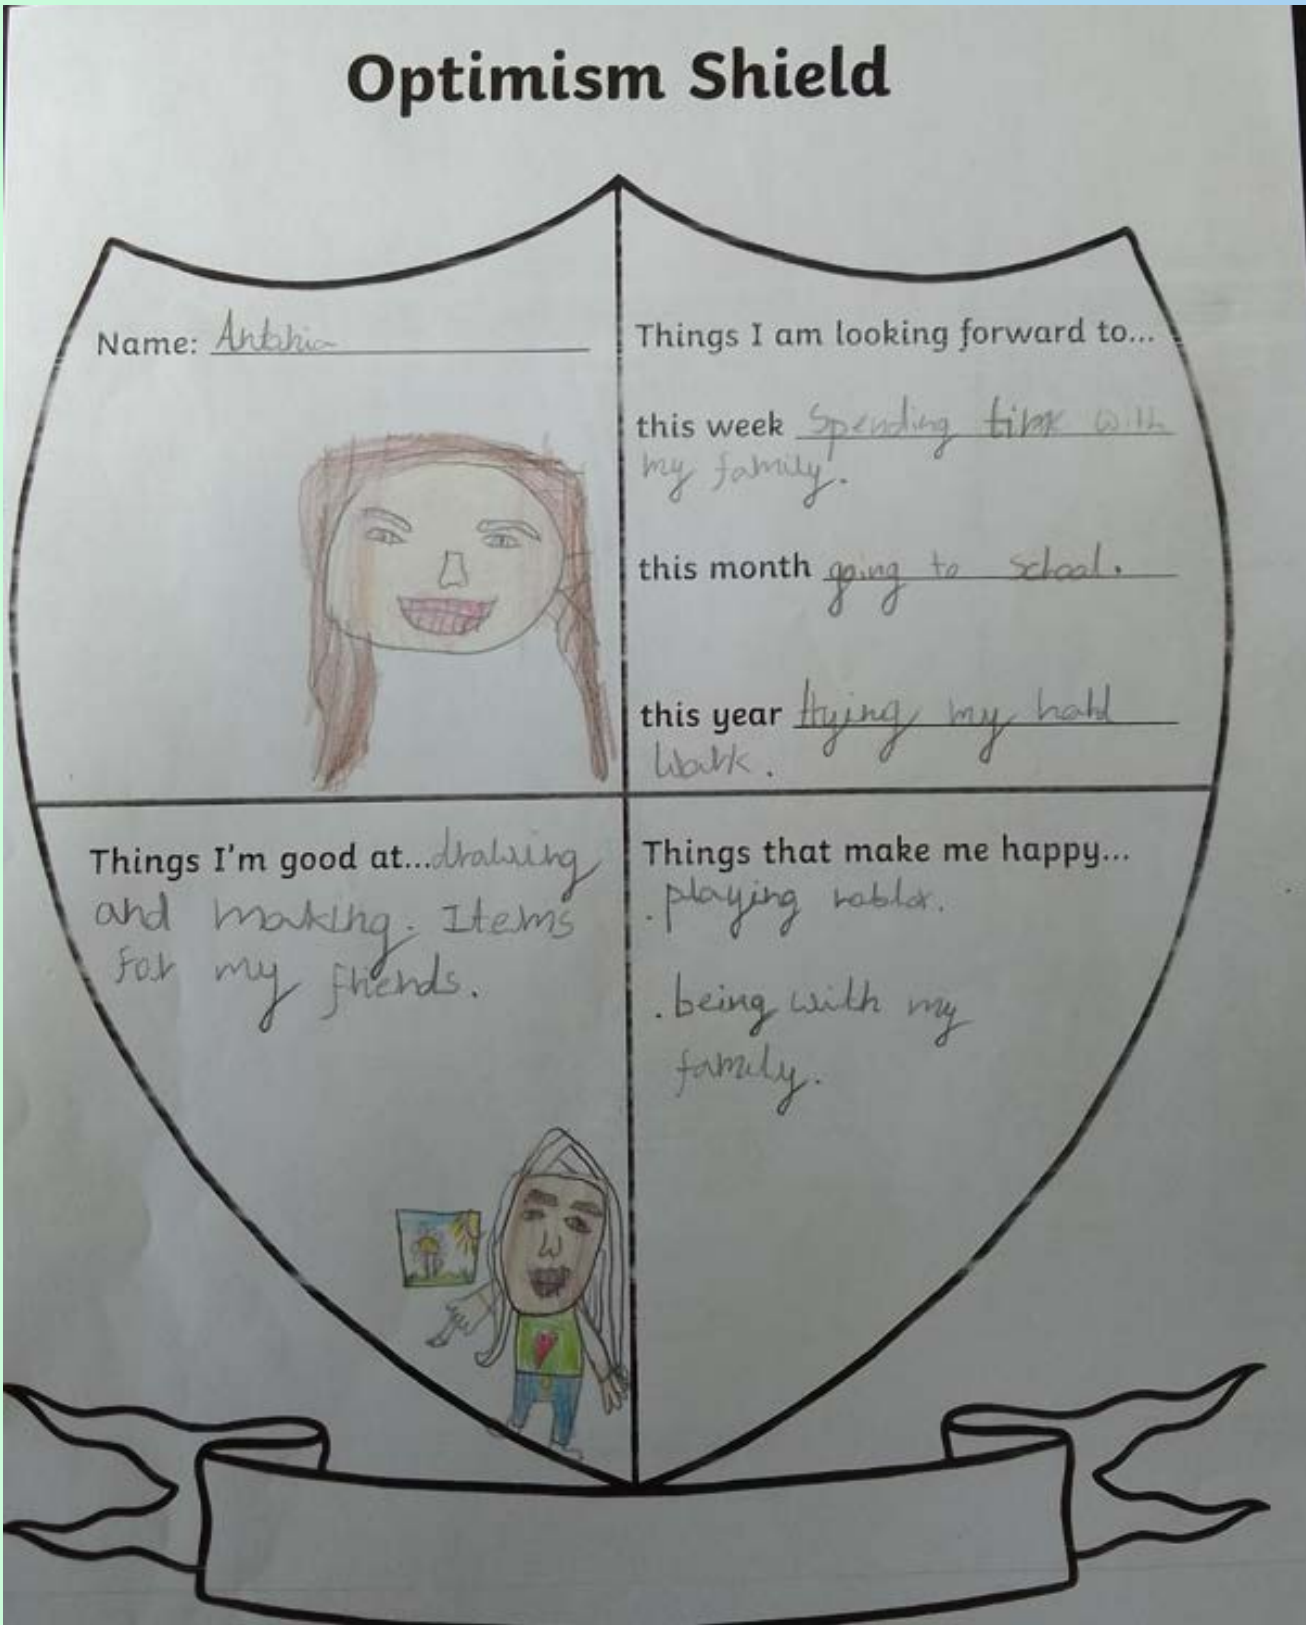 Optimism Shield
Name:
Things I am looking forward to...
this week Spending time with
my family.
this month going to school.
this year trying my hard
work.
Things I'm good at...drawing
and making. Items
for my friends.
Things that make me happy...
. playing roblox.
. being with my
family.